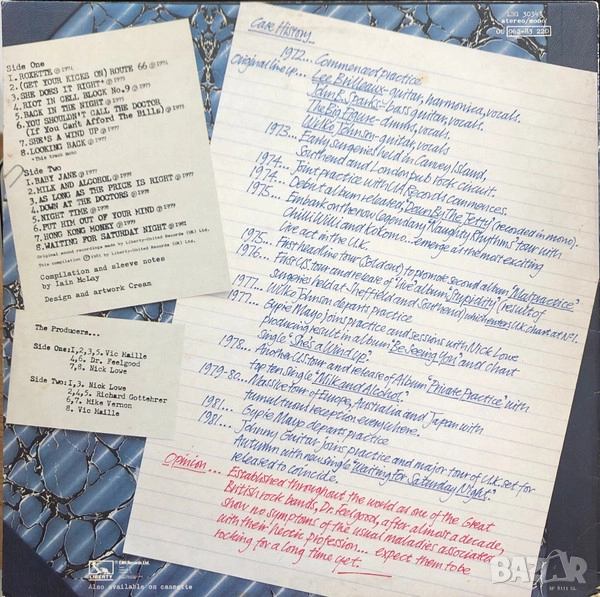 LBG 30341
stereo/mono
OC 062-83 220
Side One
1. ROXETTE ℗ 1974
2. (GET YOUR KICKS ON) ROUTE 66 ℗ 1974
3. SHE DOES IT RIGHT* ℗ 1974
4. RIOT IN CELL BLOCK No.9 ℗ 1975
5. BACK IN THE NIGHT ℗ 1975
6. YOU SHOULDN'T CALL THE DOCTOR
(If You Can't Afford The Bills) ℗ 1975
7. SHE'S A WIND UP ℗ 1977
8. LOOKING BACK ℗ 1977
*This track mono
Side Two
1. BABY JANE ℗ 1977
2. MILK AND ALCOHOL ℗ 1978
3. AS LONG AS THE PRICE IS RIGHT ℗ 1977
4. DOWN AT THE DOCTORS ℗ 1978
5. NIGHT TIME ℗ 1978
6. PUT HIM OUT OF YOUR MIND ℗ 1979
7. HONG KONG MONEY ℗ 1979
8. WAITING FOR SATURDAY NIGHT ℗ 1981
Original sound recordings made by Liberty-United Records (UK) Ltd.
This compilation ℗ 1981 by Liberty-United Records (UK) Ltd.
Compilation and sleeve notes
by Iain McLay
Design and artwork Cream
The Producers...
Side One: 1,2,3,5. Vic Maille
4,6. Dr. Feelgood
7,8. Nick Lowe
Side Two: 1,3. Nick Lowe
2,4,5. Richard Gottehrer
6,7. Mike Vernon
8. Vic Maille
Case History...
1972... Commenced practice
Original line up... Lee Brilleaux-guitar, harmonica, vocals.
John B. Sparks-bass guitar, vocals.
The Big Figure-drums, vocals.
Wilko Johnson-guitar, vocals.
1973... Early surgeries held in Canvey Island,
Southend and London pub rock circuit.
1974... Joint practice with U.A Records commences
1974... Debut album released, "Down By The Jetty" (recorded in mono).
1975... Embark on the now legendary 'Naughty Rhythms' tour with
Chilli Willi and Kokomo... emerge as the most exciting
live act in the U.K.
1975... First headline tour (sold out) to promote second album "Malpractice"
1976... First U.S. tour and release of 'live' album "Stupidity" (result of
surgeries held at Sheffield and Southend) which enters U.K. chart at No 1.
1977... Wilko Johnson departs practice
1977... Gypie Mayo joins practice and sessions with Nick Lowe
producing result in album "Be Seeing You" and chart
single "She's a Wind Up"
1978... Another U.S tour and release of Album "Private Practice" with
top ten single "Milk and Alcohol."
1979-80... Massive tour of Europe, Australia and Japan with
tumultuous reception everywhere.
1981... Gypie Mayo departs practice.
1981... Johnny Guitar joins practice and major tour of U.K. set for
Autumn with new single "Waiting For Saturday Night."
released to coincide.
Opinion... Established throughout the world as one of the Great
British rock bands, Dr. Feelgood, after almost a decade,
show no symptoms of the usual maladies associated
with their hectic profession... expect them to be
rocking for a long time yet.
LIBERTY
℗ EMI Records Ltd.
Also available on cassette
BAZAR